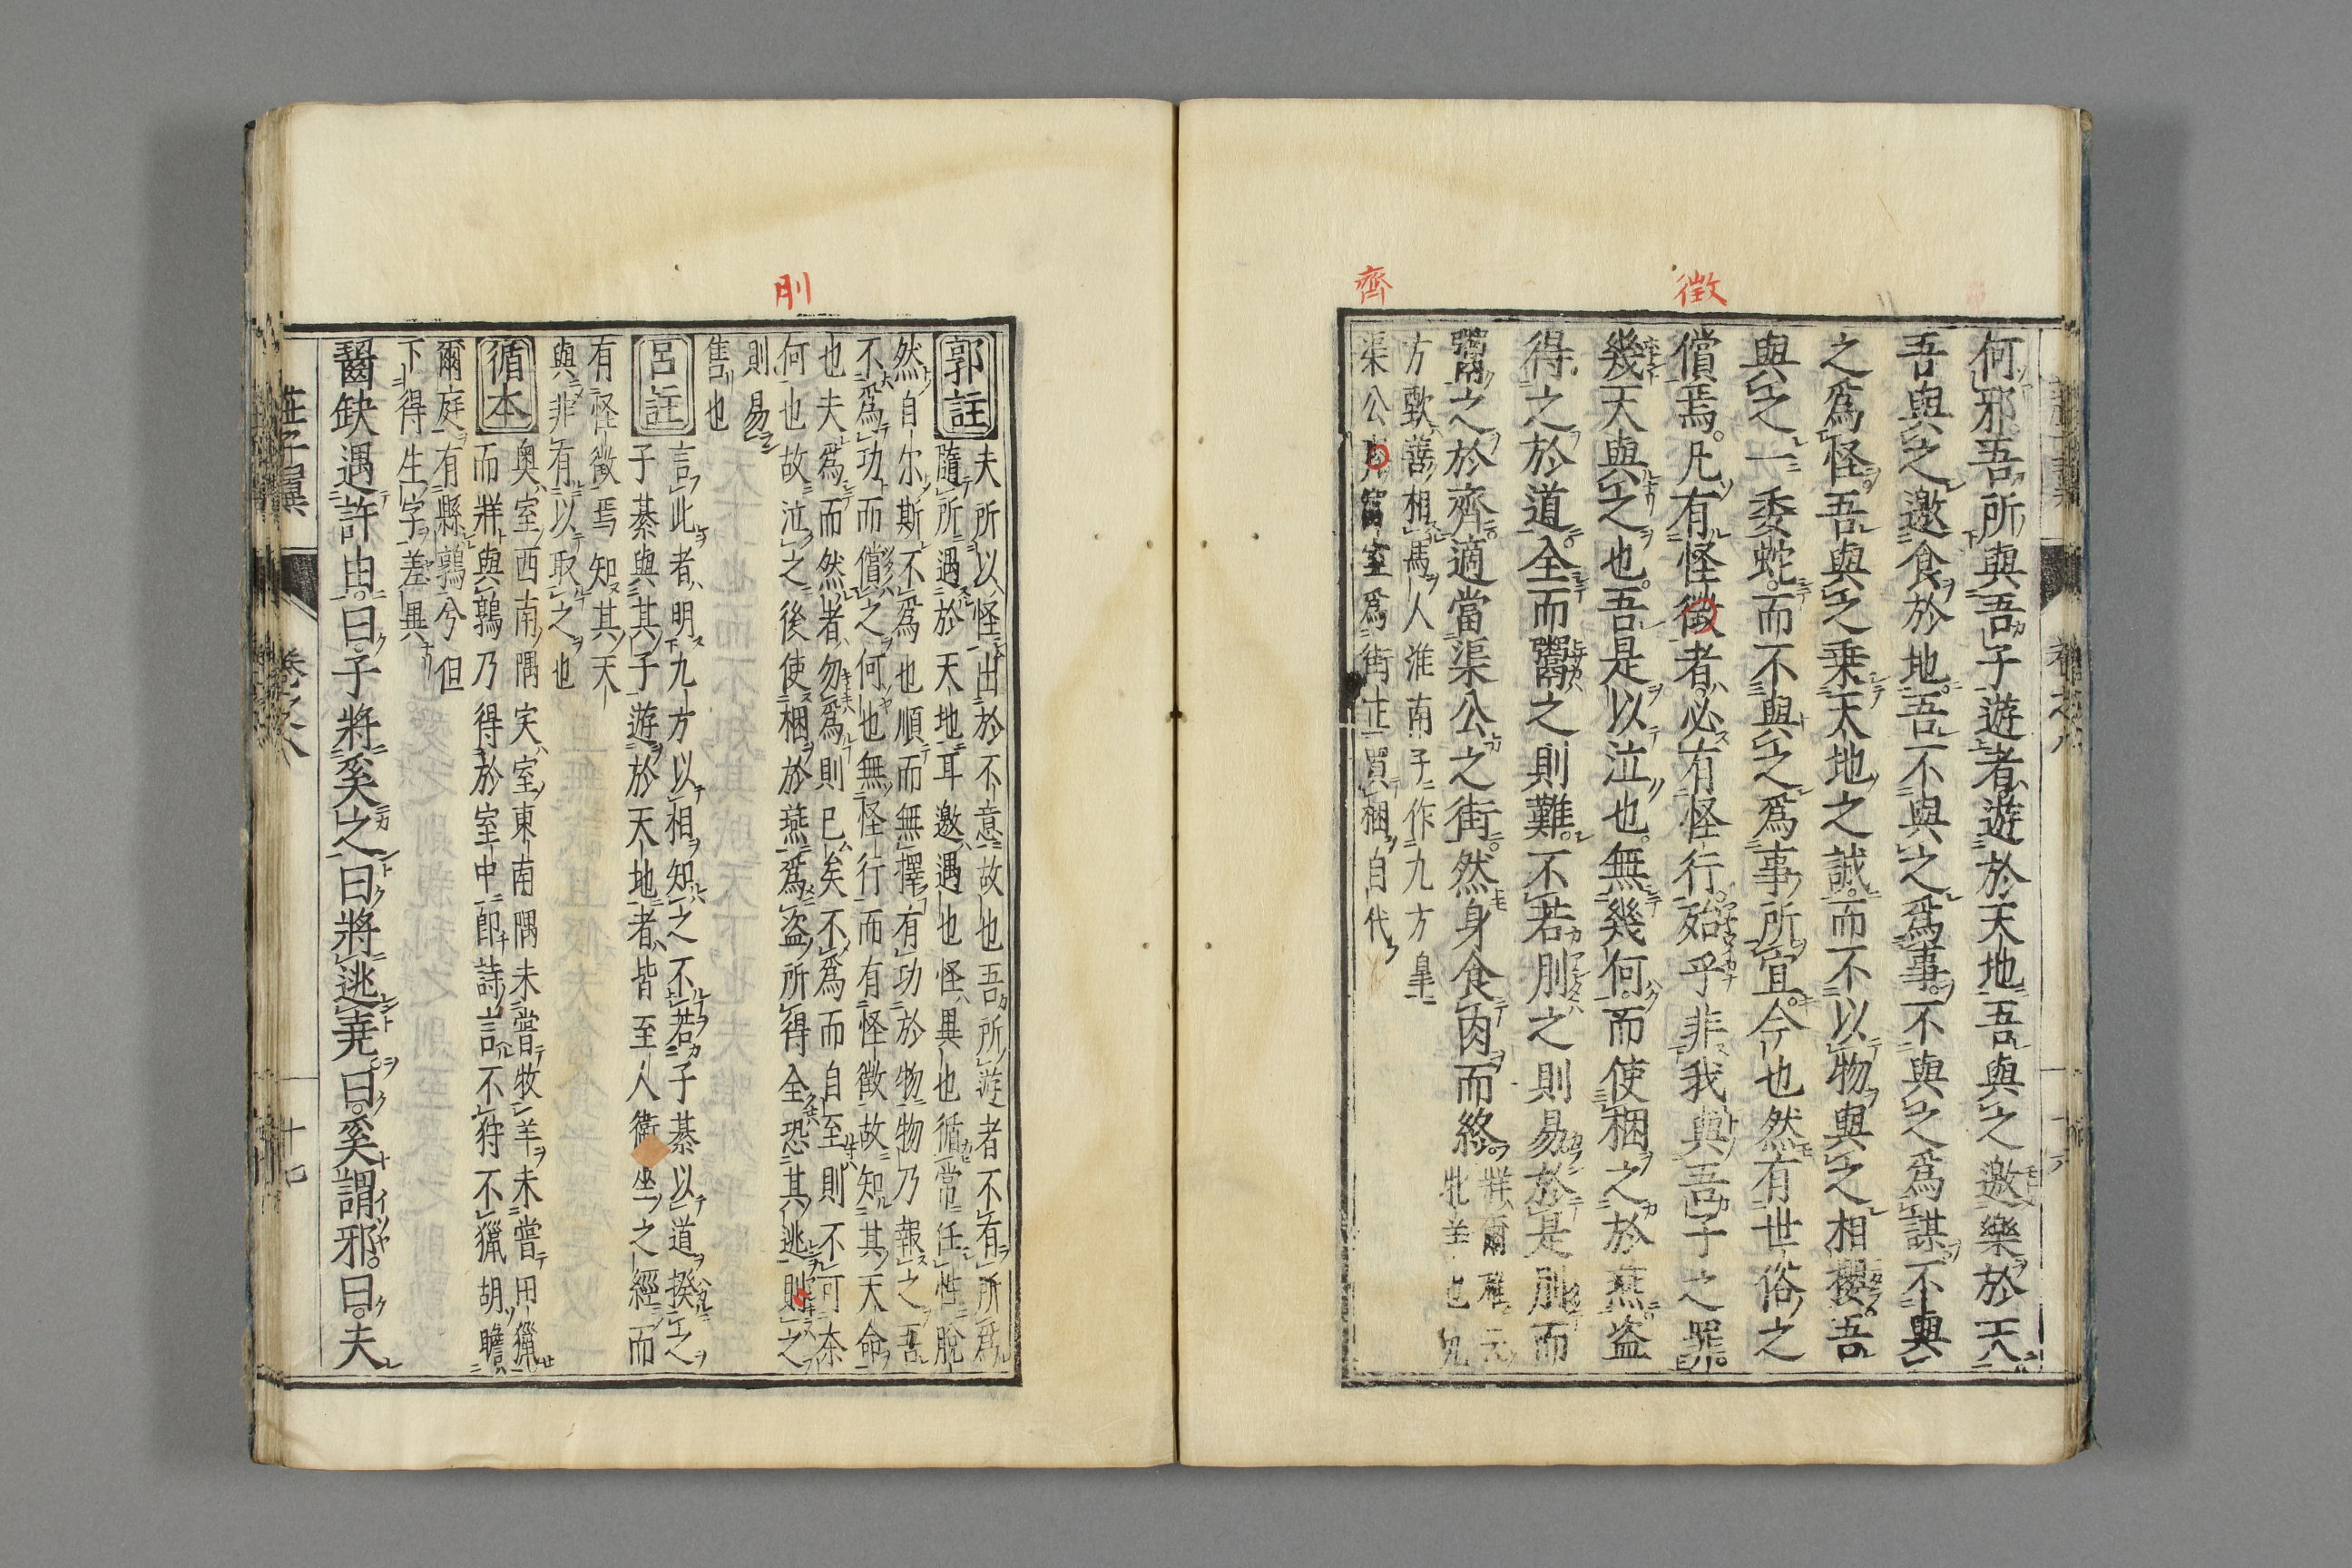 徵
齊
何邪吾所與吾子遊者遊於天地吾與之邀樂於天
吾與之邀食於地吾不與之爲事不與之爲謀不與
之爲怪吾與之乗天地之誠而不以物與之相攖吾
與之一委蛇而不與之爲事所宜今也然有世俗之
償焉凡有怪徵者必有怪行殆乎非我與吾子之罪
幾天與之也吾是以泣也無幾何而使梱之於燕盗
得之於道全而鬻之則難不若刖之則易於是刖而
鬻之於齊適當渠公之街然身食肉而終
牂爾雅云
牝羊也九
方歅善相馬人淮南子作九方皐
渠公 富室爲街正買梱自代
莊子翼
卷之八
十六
刖
郭註
夫所以怪出於不意故也吾所遊者不有所爲
隨所遇於天地耳邀遇也怪異也循常任性脫
然自尔斯不爲也順而無擇有功於物物乃報之吾
不爲功而償之何也無怪行而有怪徵故知其天命
也夫爲而然者勿爲則已矣不爲而自至則不可柰
何也故泣之後使梱於燕爲盗所得全恐其逃 之
則易
售也
呂註
言此者明九方以相知之不若子綦以道揆之
子綦與其子遊於天地者皆至人衛 之經而
有怪徵焉知其天
與非有以取之也
循本
奥室西南隅宎室東南隅未嘗牧羊未嘗用獵
而牂與鶉乃得於室中即詩言不狩不獵胡瞻
爾庭有縣鶉兮但
下得生字差異
齧缺遇許由曰子將奚之曰將逃堯曰奚謂邪曰夫
莊子翼
卷之八
十七